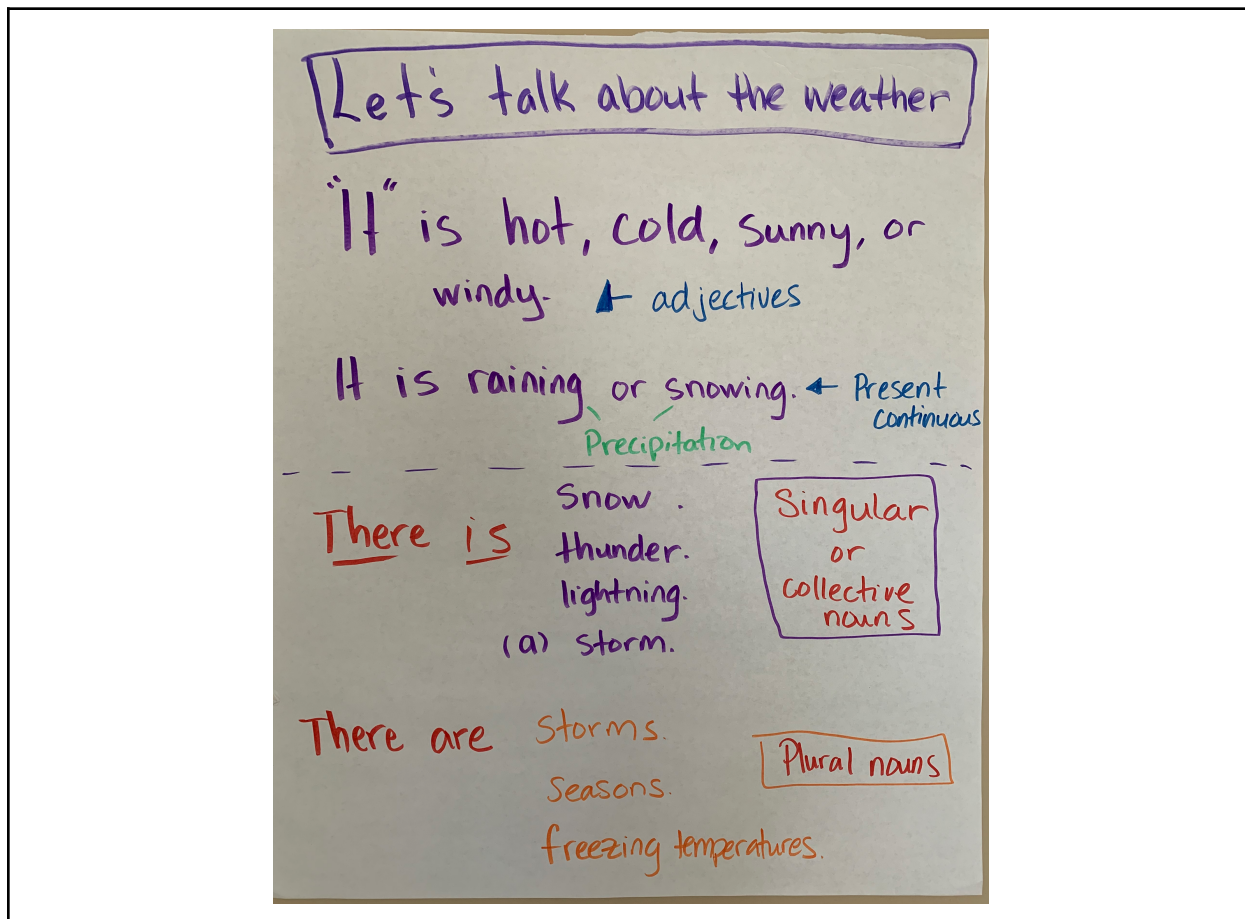 Let's talk about the weather
"It" is hot, cold, sunny, or
windy. adjectives
It is raining or snowing. Present
continuous
Precipitation
There is
snow.
thunder.
lightning.
(a) storm.
Singular
or
collective
nouns
There are
storms.
seasons.
freezing temperatures.
Plural nouns